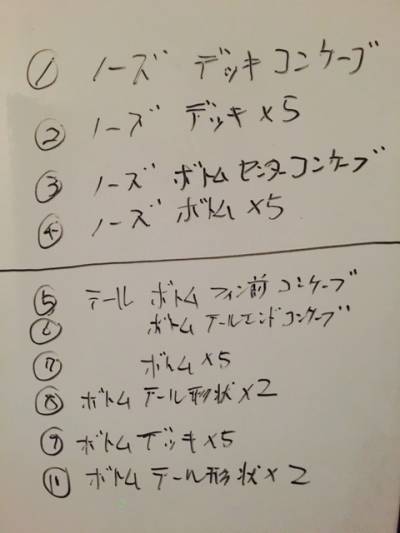 ① ノーズ デッキ コンケーブ
② ノーズ デッキ×5
③ ノーズ ボトム センターコンケーブ
④ ノーズ ボトム ×5
⑤ テール ボトム フィン前 コンケーブ
⑥ ボトム テールエンドコンケーブ
⑦ ボトム×5
⑧ ボトム テール形状×2
⑨ ボトム デッキ×5
⑪ ボトム テール形状×2